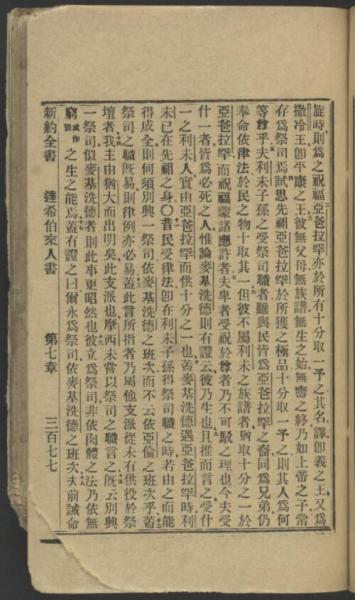 旋時則爲之祝福亞伯拉罕亦於所有十分取一予之其名譯卽義之王又爲
撒冷王卽平康之王彼無父母無族譜無生之始無壽之終乃如上帝之子常
存爲祭司焉試思先祖亞伯拉罕於所獲之極品十分取一予之則其人爲何
等尊乎夫利未子孫之受祭司職者雖與民皆爲亞伯拉罕之裔同爲兄弟仍
奉命依律法於民之物十取其一但彼不屬利未之族譜者猶取十分之一於
亞伯拉罕而祝福蒙諸應許者夫卑者受祝於尊者乃不可駁之理也今夫受
什一者皆爲必死之人惟論麥基洗德則有證云彼乃生也且推而言之受什
一之利未人實由亞伯拉罕而供十分之一也蓋麥基洗德遇亞伯拉罕時利
未已在先祖之身〇昔民受律法卽在利未子孫得祭司職之時若由之而能
得成全則何須別興一祭司依麥基洗德之班次而不云依亞倫之班次乎蓋
祭司之職旣易則律例亦必易蓋此言所指者乃屬他支派從未有供役於祭
壇者我主由猶大而出明矣此支派也摩西未嘗以祭司之職言之旣云別興
一祭司似麥基洗德者則此事更昭然也彼立爲祭司非依肉體之法乃依無
窮或作毀之生之能焉蓋有證之曰爾永爲祭司依麥基洗德之班次夫前誡命
新約全書 達希伯來人書 第七章 三百七七